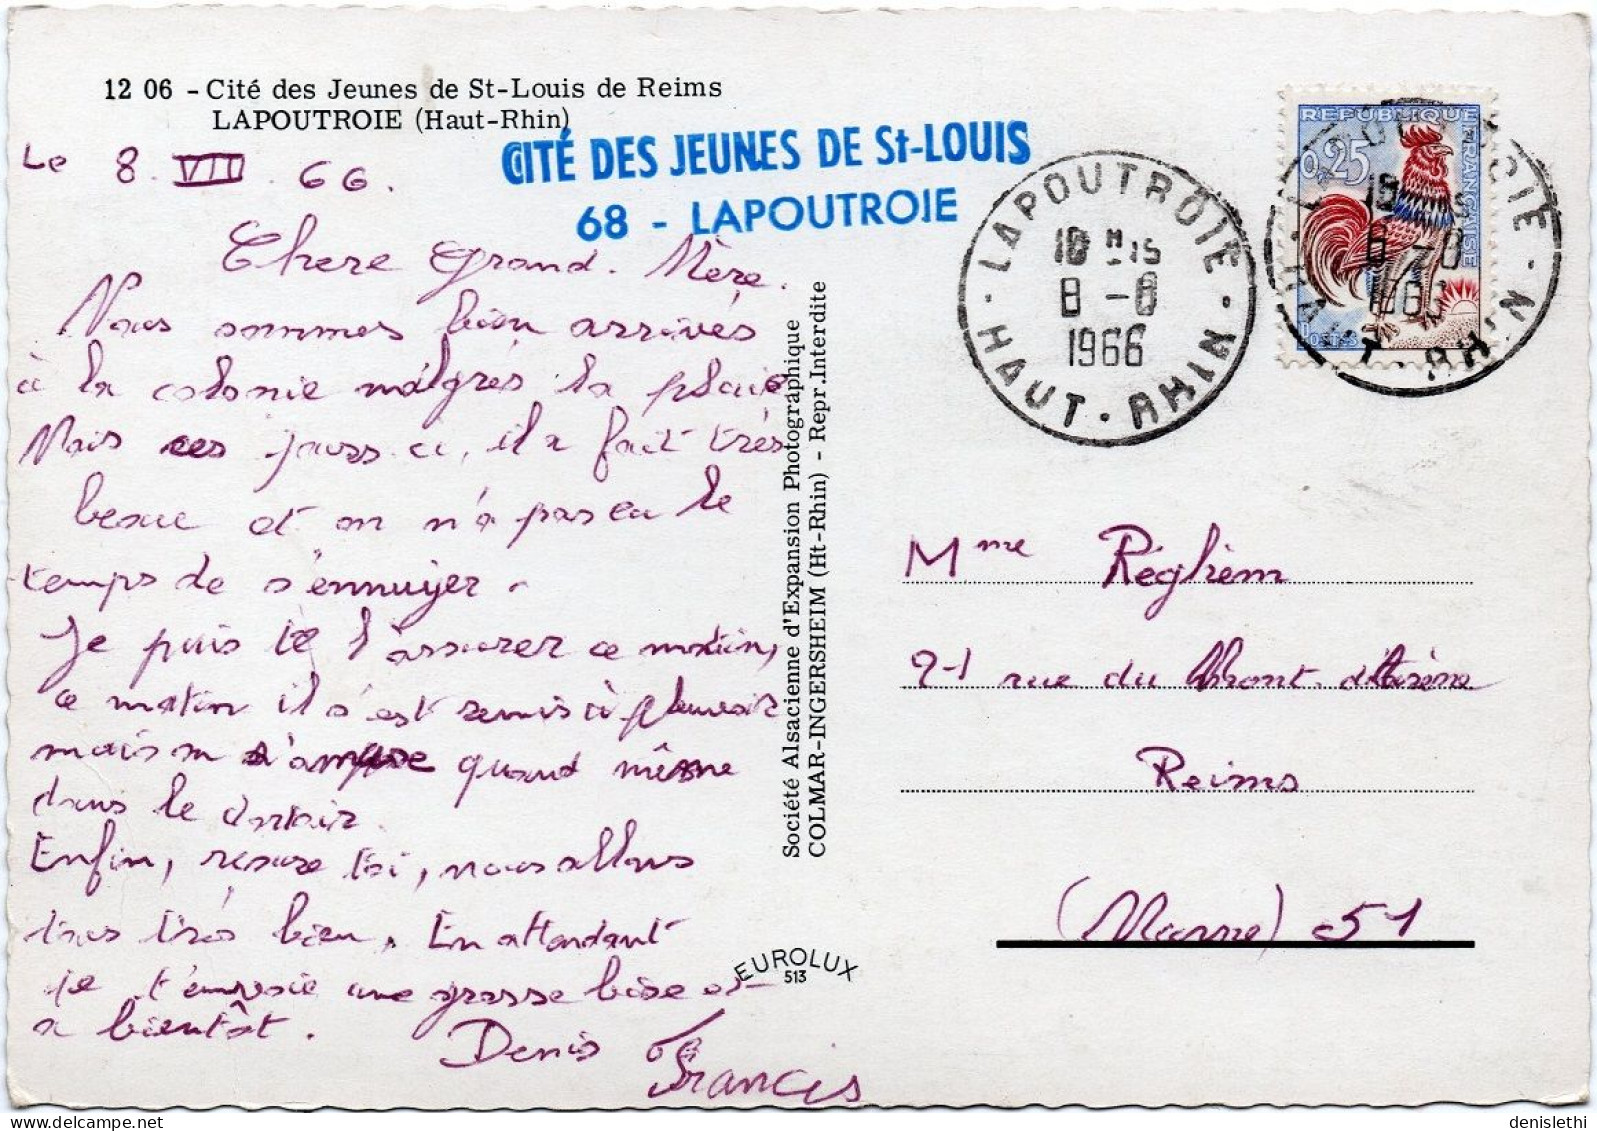 12 06 - Cité des Jeunes de St-Louis de Reims
LAPOUTROIE (Haut-Rhin)
CITÉ DES JEUNES DE St-LOUIS
68 - LAPOUTROIE
Le 8. VIII. 66.
Chere Grand. Mère.
Nous sommes bien arrivés
à la colonie malgrès la pluie
Mais ces jours ci, il a fait très
beau et on n'a pas eu le
temps de s'ennuyer.
Je puis te l'assurer ce matin,
ce matin il s'est remis à pleuvoir
mais on s'amuse quand même
dans le dortoir.
Enfin, rassure toi, nous allons
tous très bien. En attendant
je t'envoie une grosse bise et
a bientôt.
Denis
Francis
Société Alsacienne d'Expansion Photographique
COLMAR-INGERSHEIM (Ht-Rhin) - Repr. Interdite
EUROLUX
513
LAPOUTROIE
18 H 15
8 - 8
1966
HAUT-RHIN
REPUBLIQUE FRANÇAISE
0,25
POSTES
Mme Réghem
21 rue du Mont d'Arène
Reims
(Marne) 51
denislethi